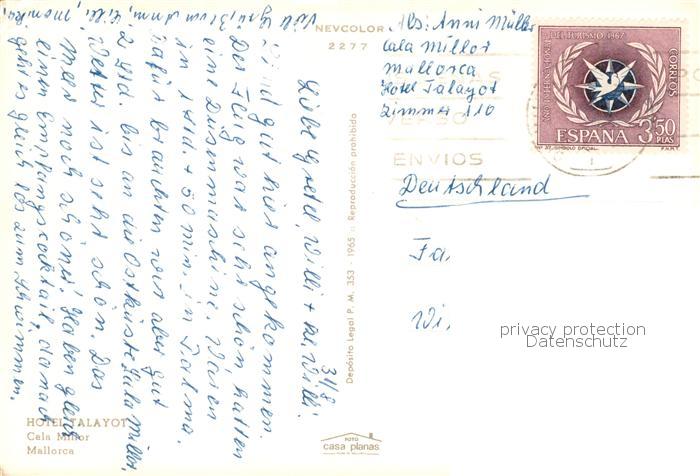 NEVCOLOR
2277
Abs: Anni Müller
Cala Millor
Mallorca
Hotel Talayot
Zimmer 110
AÑO INTERNACIONAL DEL TURISMO 1967
CORREOS
ESPAÑA 3,50 PTAS
F.N.M.T.
ENVIOS
Deutschland
Fa.
Wi.
privacy protection
Datenschutz
31/8
Liebe Greta, Willi + Kl. Willi.
Sind gut hier angekommen.
Der Flug war sehr schön hatten
eine Düsenmaschine. Waren
in 1 Std. + 50 min. in Palma.
Dafür brauchten wir aber gut
2 Std. bis an die Ostküste Cala Millor.
Wetter ist sehr schön. Das
Meer noch schöner. Haben gleich
einen Empfangscocktail, danach
geht es gleich los zum Schwimmen.
Viele Grüße von Anni, Willi, Monika,
Depósito Legal P. M. 353 - 1965 :: Reproducción prohibida
HOTEL TALAYOT
Cala Millor
Mallorca
FOTO
casa planas